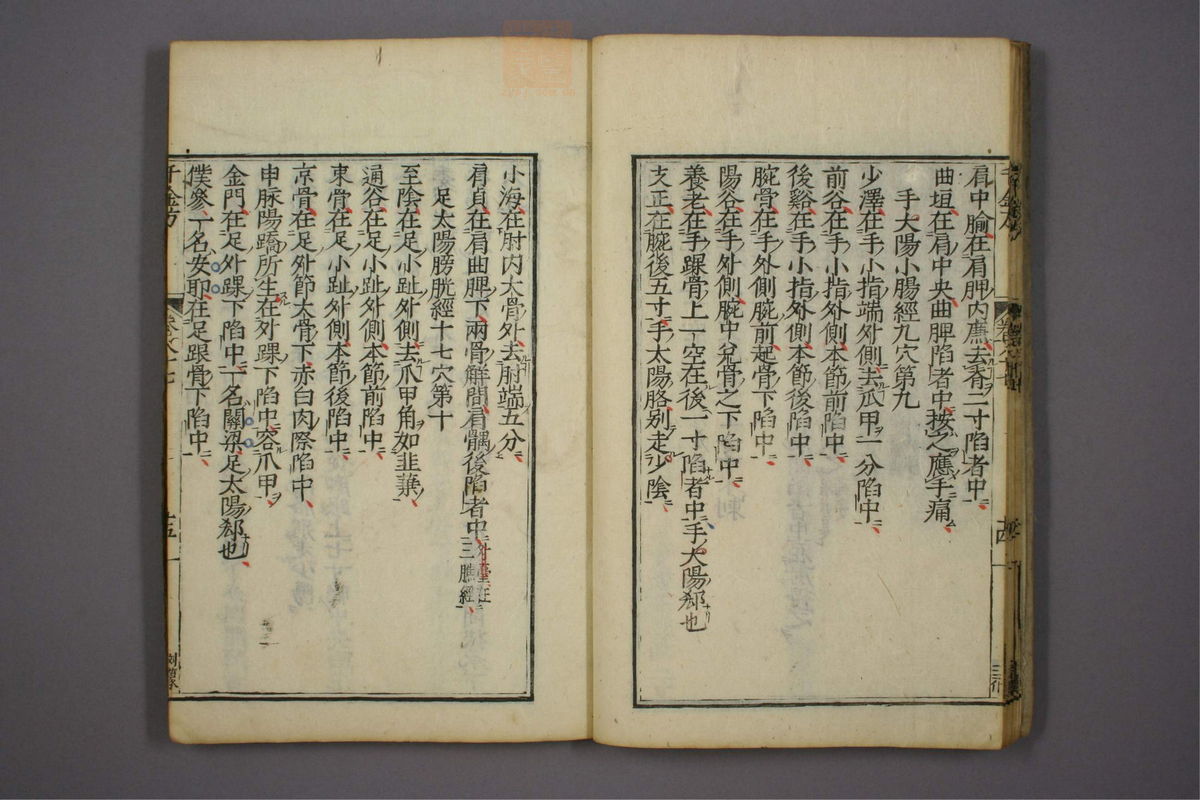 肩中腧在肩胛内廉去脊二寸陷者中
曲垣在肩中央曲胛陷者中按之應手痛
手太陽小腸經九穴第九
少澤在手小指端外側去爪甲一分陷中
前谷在手小指外側本節前陷中
後谿在手小指外側本節後陷中
腕骨在手外側腕前起骨下陷中
陽谷在手外側腕中兌骨之下陷中
養老在手踝骨上一空在後一寸陷者中手太陽郄也
支正在腕後五寸手太陽胳别走少陰
小海在肘内大骨外去肘端五分
肩貞在肩曲胛下兩骨解間肩髃後陷者中外臺在三膲經
足太陽膀胱經十七穴第十
至陰在足小趾外側去爪甲角如韭葉
通谷在足小趾外側本節前陷中
束骨在足小趾外側本節後陷中
京骨在足外節大骨下赤白肉際陷中
申脉陽蹻所生在外踝下陷中容爪甲
金門在足外踝下陷中一名關梁足太陽郄也
僕參一名安耶在足跟骨下陷中
千金方
十五